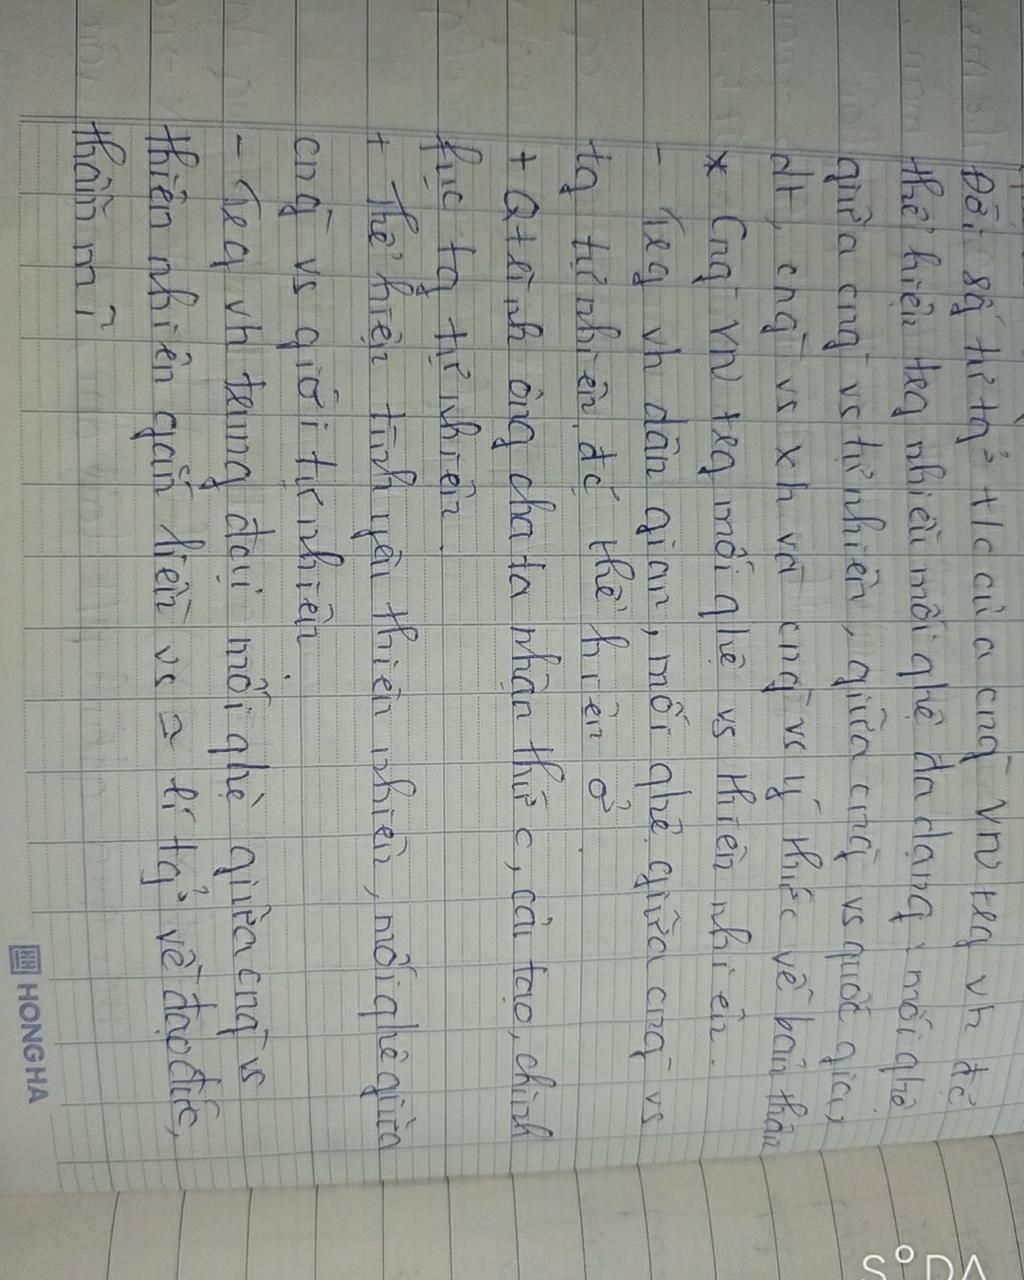 Đời sg tư tg² + /c của cng̃ VN trg vh đc̃
thể hiện trg nhiều mối qhệ đa dạng: mối qhệ
giữa cng̃ vs tự nhiên, giữa cng̃ vs quốc gia,
dt, cng̃ vs xh và cng̃ vs ý thức về bản thân
* Cng̃ VN trg mối qhệ vs thiên nhiên.
- Trg vh dân gian, mối qhệ giữa cng̃ vs
tg tự nhiên đc̃ thể hiện ở
+ Qtrình ông cha ta nhận thức, cải tạo, chinh
phục tg tự nhiên.
+ Thể hiện tình yêu thiên nhiên, mối qhệ giữa
cng̃ vs giới tự nhiên
- Trg vh trung đại mối qhệ giữa cng̃ vs
thiên nhiên gắn liền vs lí tg² về đạo đức,
thẩm mĩ
HONG HA
SODA